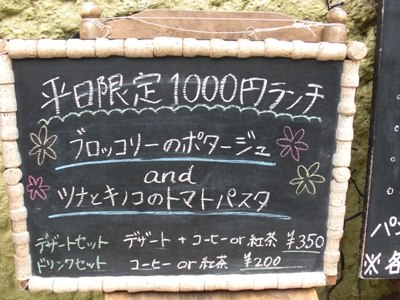 平日限定1000円ランチ
ブロッコリーのポタージュ
and
ツナとキノコのトマトパスタ
デザートセット デザート + コーヒー or 紅茶 ¥350
ドリンクセット コーヒー or 紅茶 ¥200
パン
※各